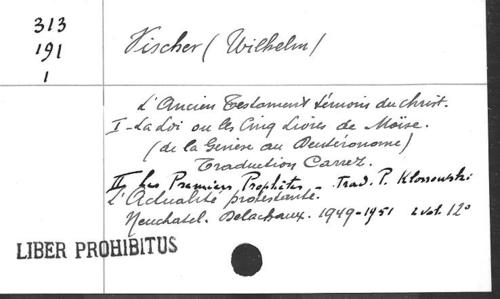 313
191
1
Vischer (Wilhelm)
L'Ancien Testament témoin du Christ.
I - La Loi ou les Cinq Livres de Moïse.
(de la Genèse au Deutéronome)
Traduction Carrez.
II Les Premiers Prophètes - Trad. P. Klossowski
L'Actualité protestante.
Neuchatel. Delachaux. 1949-1951 2 vol. 12°
LIBER PROHIBITUS